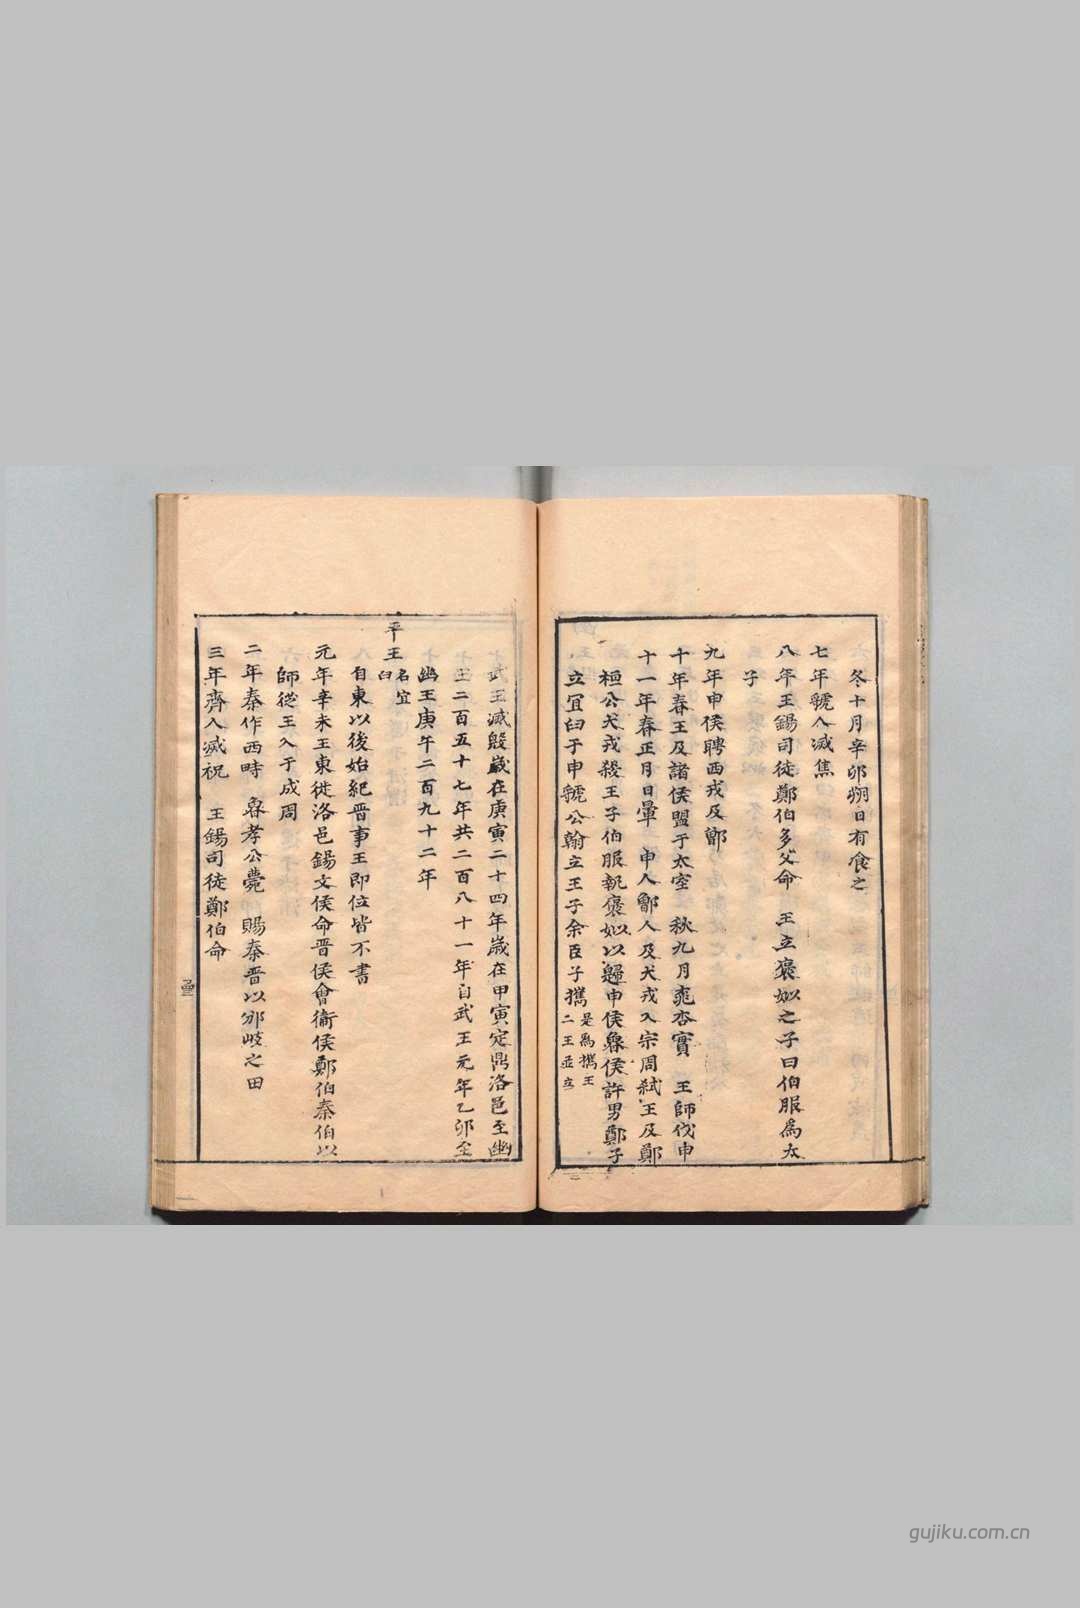 冬十月辛卯朔日有食之
七年虢人滅焦
八年王錫司徒鄭伯多父命 王立褒姒之子曰伯服為太
子
九年申侯聘西戎及鄫
十年春王及諸侯盟于太室 秋九月桃杏實 王師伐申
十一年春正月日暈 申人鄫人及犬戎入宗周弑王及鄭
桓公犬戎殺王子伯服執褒姒以歸申侯魯侯許男鄭子
立宜臼于申虢公翰立王子余臣于攜
是為攜王
二王並立
武王滅殷歲在庚寅二十四年歲在甲寅定鼎洛邑至幽
王二百五十七年共二百八十一年自武王元年乙卯至
幽王庚午二百九十二年
平王
名宜
臼
自東以後始紀晉事王即位皆不書
元年辛未王東徙洛邑錫文侯命晉侯會衞侯鄭伯秦伯以
師從王入于成周
二年秦作西畤 魯孝公薨 賜秦晋以邠岐之田
三年齊人滅祝 王錫司徒鄭伯命
gujiku.com.cn